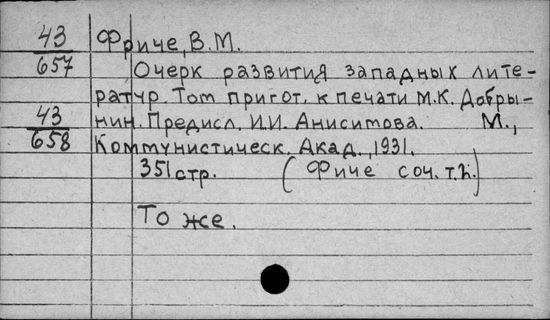 43 Фриче, В.М.
657 Очерк развития западных лите-
ратур. Том пригот. к печати М.К. Добры-
43 нин. Предисл. И.И. Анисимова. М.,
658 Коммунистическ. Акад., 1931.
351 стр. (Фиче соч. т.)
То же.